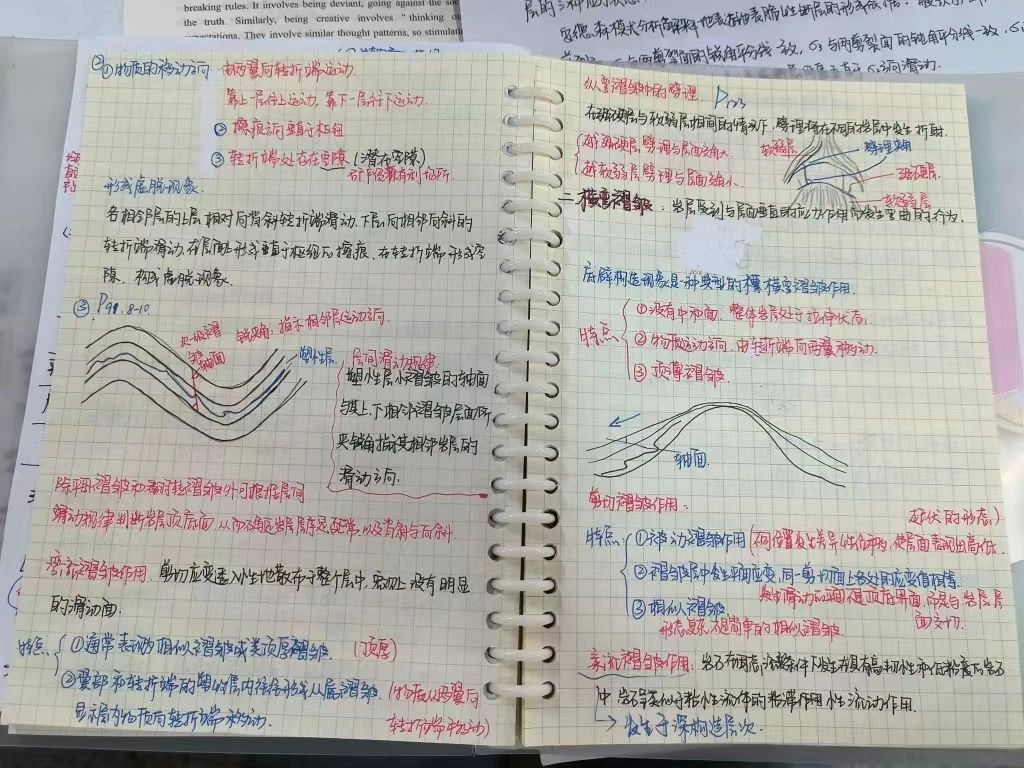 breaking rules. It involves being deviant, going against the
the truth. Similarly, being creative involves "thinking ou
They involve similar thought patterns, so stimulat
②①物质的移动方向 由两翼向转折端运动.
靠上一层往上运动, 靠下一层往下运动.
② 擦痕方向垂直于枢纽
③ 转折端处存在空隙 (潜在空隙)
形成虚脱现象.
各相邻层的上层相对向背斜转折端滑动, 下层向相邻向斜的
转折端滑动, 在层面形成垂直于枢纽的擦痕, 在转折端形成空
隙, 构成虚脱现象.
③ P98. 8-10.
锐夹角: 指示相邻层运动方向.
轴面
塑性层
层间滑动规律
塑性层小褶皱的轴面
与其上、下相邻褶皱层面所
夹锐角指示其相邻岩层的
滑动方向.
除平卧褶皱和翻转褶皱外可根据层间
滑动规律判断岩层顶底面, 从而确定岩层层序是否正常, 以及背斜与向斜.
弯流褶皱作用: 剪切应变连续地散布于整个层中, 宏观上没有明显
的滑动面.
特点:
①通常表现为相似褶皱或类顶厚褶皱. (顶厚)
②翼部和转折端的塑性层内往往形成从属褶皱. (物质从两翼向
显示层内物质向转折端移动. 转折端移动)
纵弯褶皱中的劈理. P123
在强硬层与软弱层相间的情况下, 劈理将在不同的岩层中发生折射.
越强硬层, 劈理与层面交角大.
越软弱层, 劈理与层面交角小.
软弱层
劈理夹角
强硬层
软弱层
二、横弯褶皱: 岩层受到与层面垂直的应力作用而发生弯曲的行为.
底辟构造现象是一种典型的横弯褶皱作用.
特点:
①没有中和面, 整体岩层处于拉伸状态.
②物质运动方向, 由转折端向两翼移动.
③顶薄褶皱.
轴面
剪切褶皱作用:
起伏的形态)
特点:
①被动褶皱作用 (不同位置发生差异性位移, 使层面表现出高低
②褶皱层中发生平面应变, 同一剪切面上各处的应变值相等.
发生滑动的平面不是顶底界面, 而是与岩层层
③相似褶皱. 面交切.
形态复杂, 不是简单的相似褶皱.
柔流褶皱作用: 岩石
中, 岩石呈类似于粘性流体的粘滞作用性流动作用.
→ 发生于深构造层次.